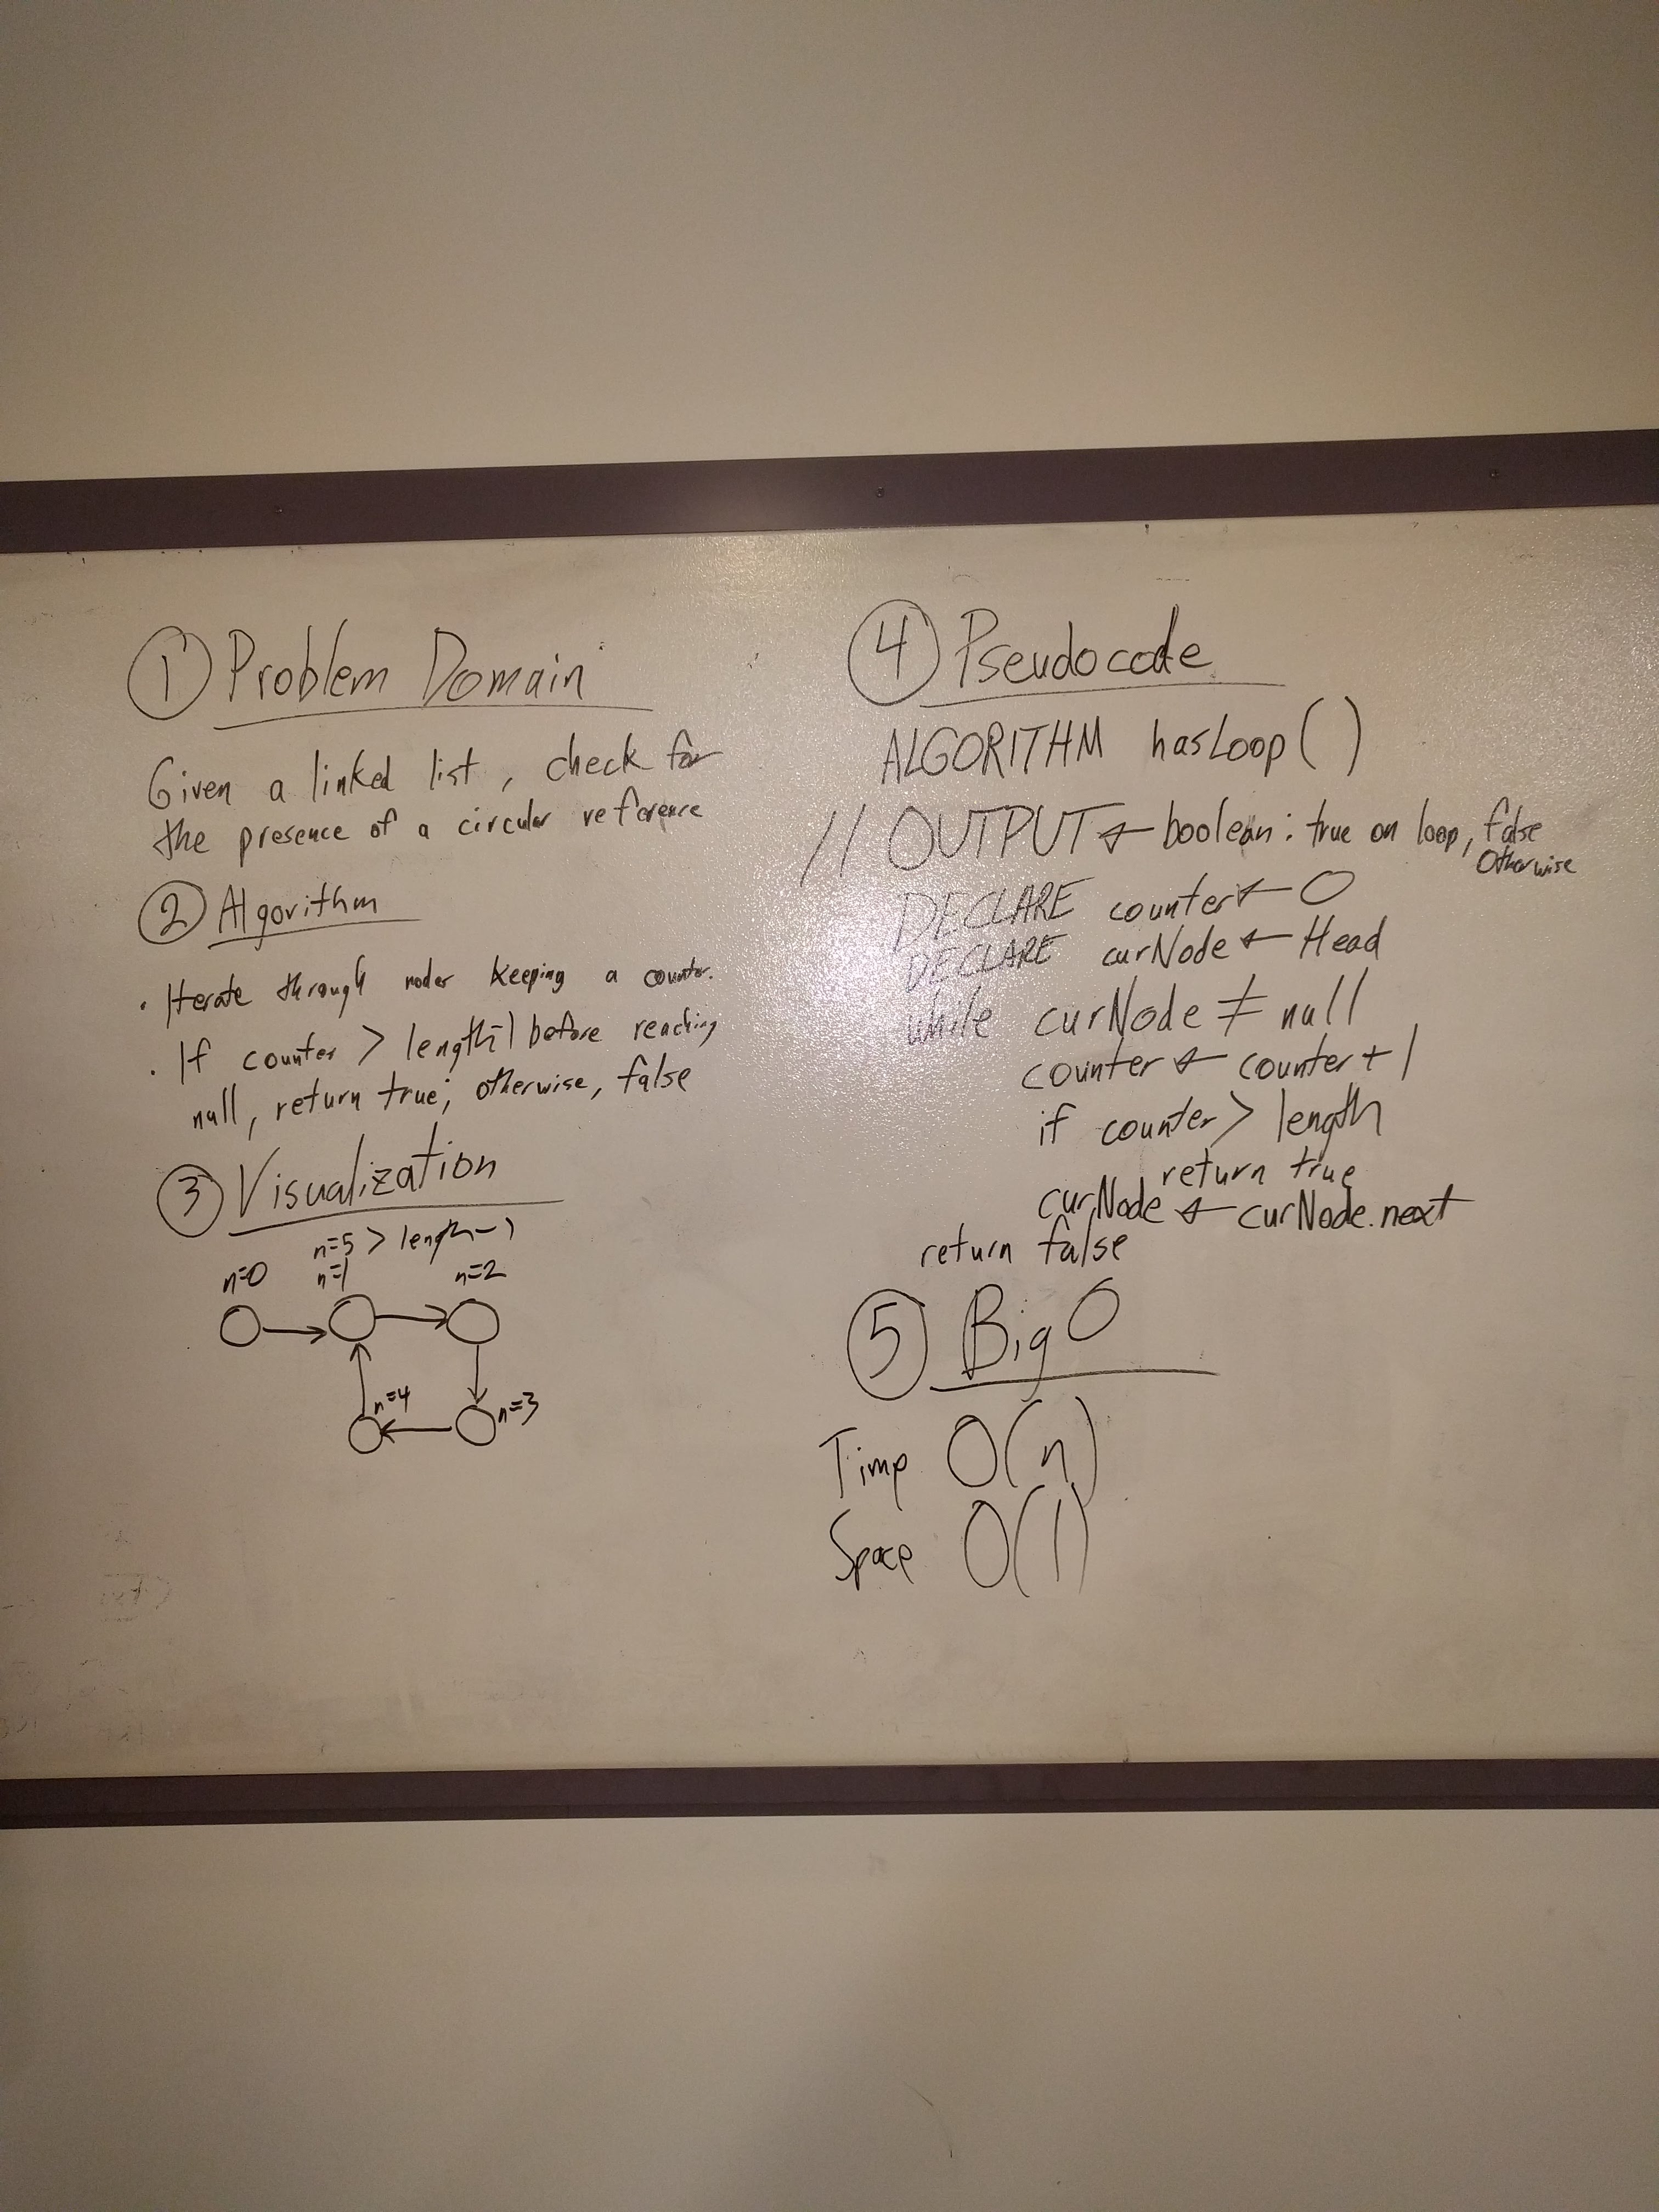 ① Problem Domain
Given a linked list, check for
the presence of a circular reference
② Algorithm
· Iterate through nodes keeping a counter.
· If counter > length-1 before reaching
null, return true; otherwise, false
③ Visualization
n=5 > length-1
n=0 n=1 n=2
n=4 n=3
④ Pseudocode
ALGORITHM hasLoop()
// OUTPUT ← boolean: true on loop, false
otherwise
DECLARE counter ← 0
DECLARE curNode ← Head
while curNode ≠ null
counter ← counter + 1
if counter > length
return true
curNode ← curNode.next
return false
⑤ Big O
Time O(n)
Space O(1)